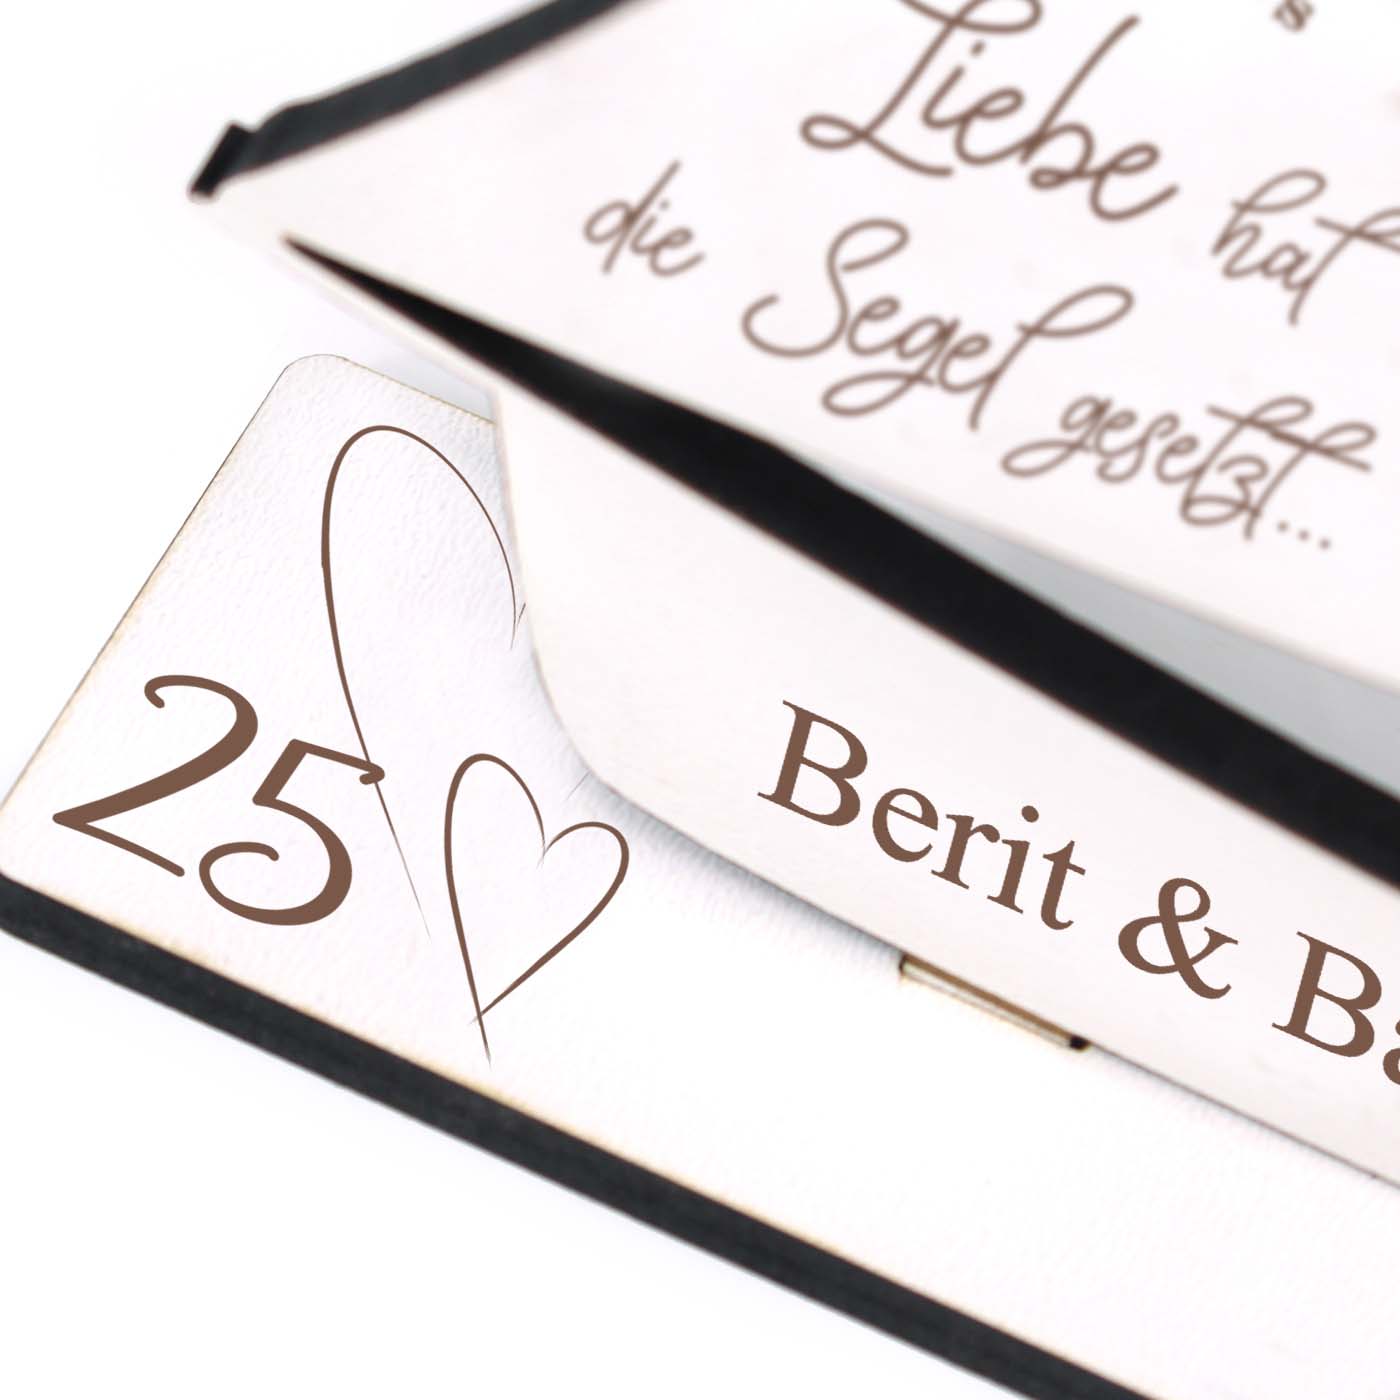 s
Liebe hat
die Segel gesetzt...
Berit & Ba
25